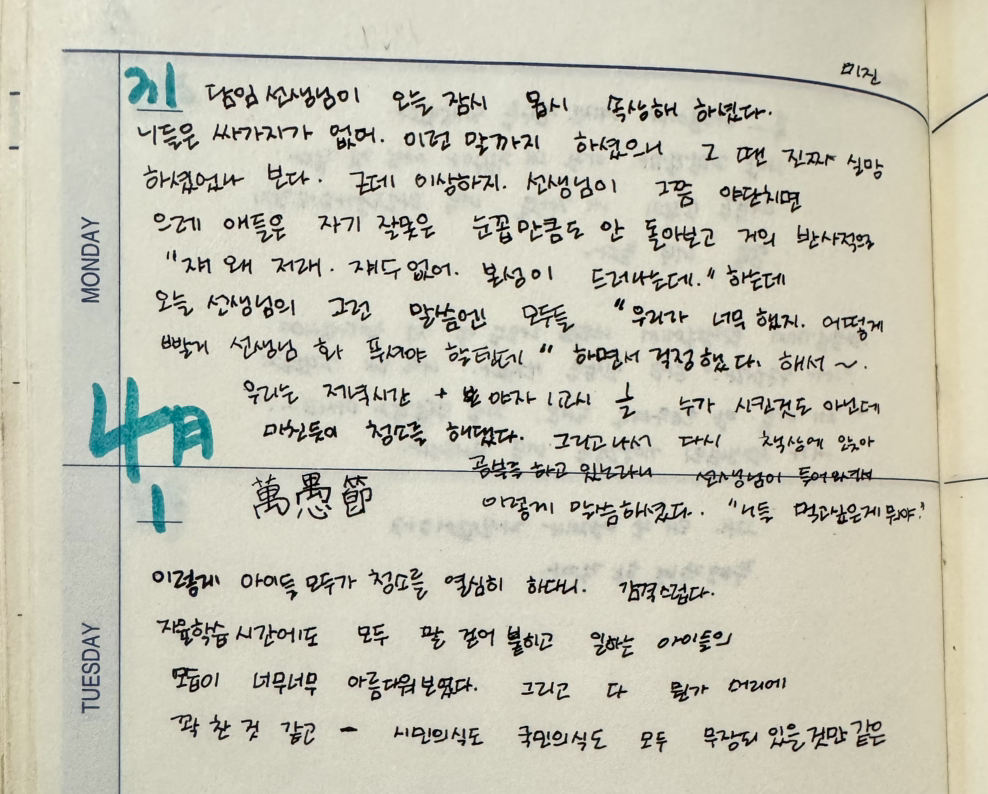 미진
31 담임 선생님이 오늘 잠시 몹시 속상해 하셨다.
니들은 싸가지가 없어. 이런 말까지 하셨으니 그 땐 진짜 실망
하셨었나 보다. 근데 이상하지. 선생님이 그쯤 야단치면
MONDAY
으레 애들은 자기 잘못은 눈꼽만큼도 안 돌아보고 거의 반사적으로
"쟤 왜 저래. 재수없어. 본성이 드러나는데." 하는데
오늘 선생님의 그런 말씀엔 모두들 "우리가 너무 했지. 어떻게
빨리 선생님 화 푸셔야 할텐데" 하면서 걱정했다. 해서 ~.
우리는 저녁시간 + 야자 1교시 를 누가 시킨것도 아닌데
4月
미친듯이 청소를 해댔다. 그리고나서 다시 책상에 앉아
공부를 하고 있노라니 선생님이 들어오셔서
1 萬愚節
이렇게 말씀하셨다. "니들 먹고싶은게 뭐야."
이렇게 아이들 모두가 청소를 열심히 하다니. 감격스럽다.
TUESDAY
자율학습 시간에도 모두 팔 걷어 붙히고 일하는 아이들의
모습이 너무너무 아름다워보였다. 그리고 다 뭔가 머리에
꽉 찬 것 같고 - 시민의식도 국민의식도 모두 무장되 있을것만 같은